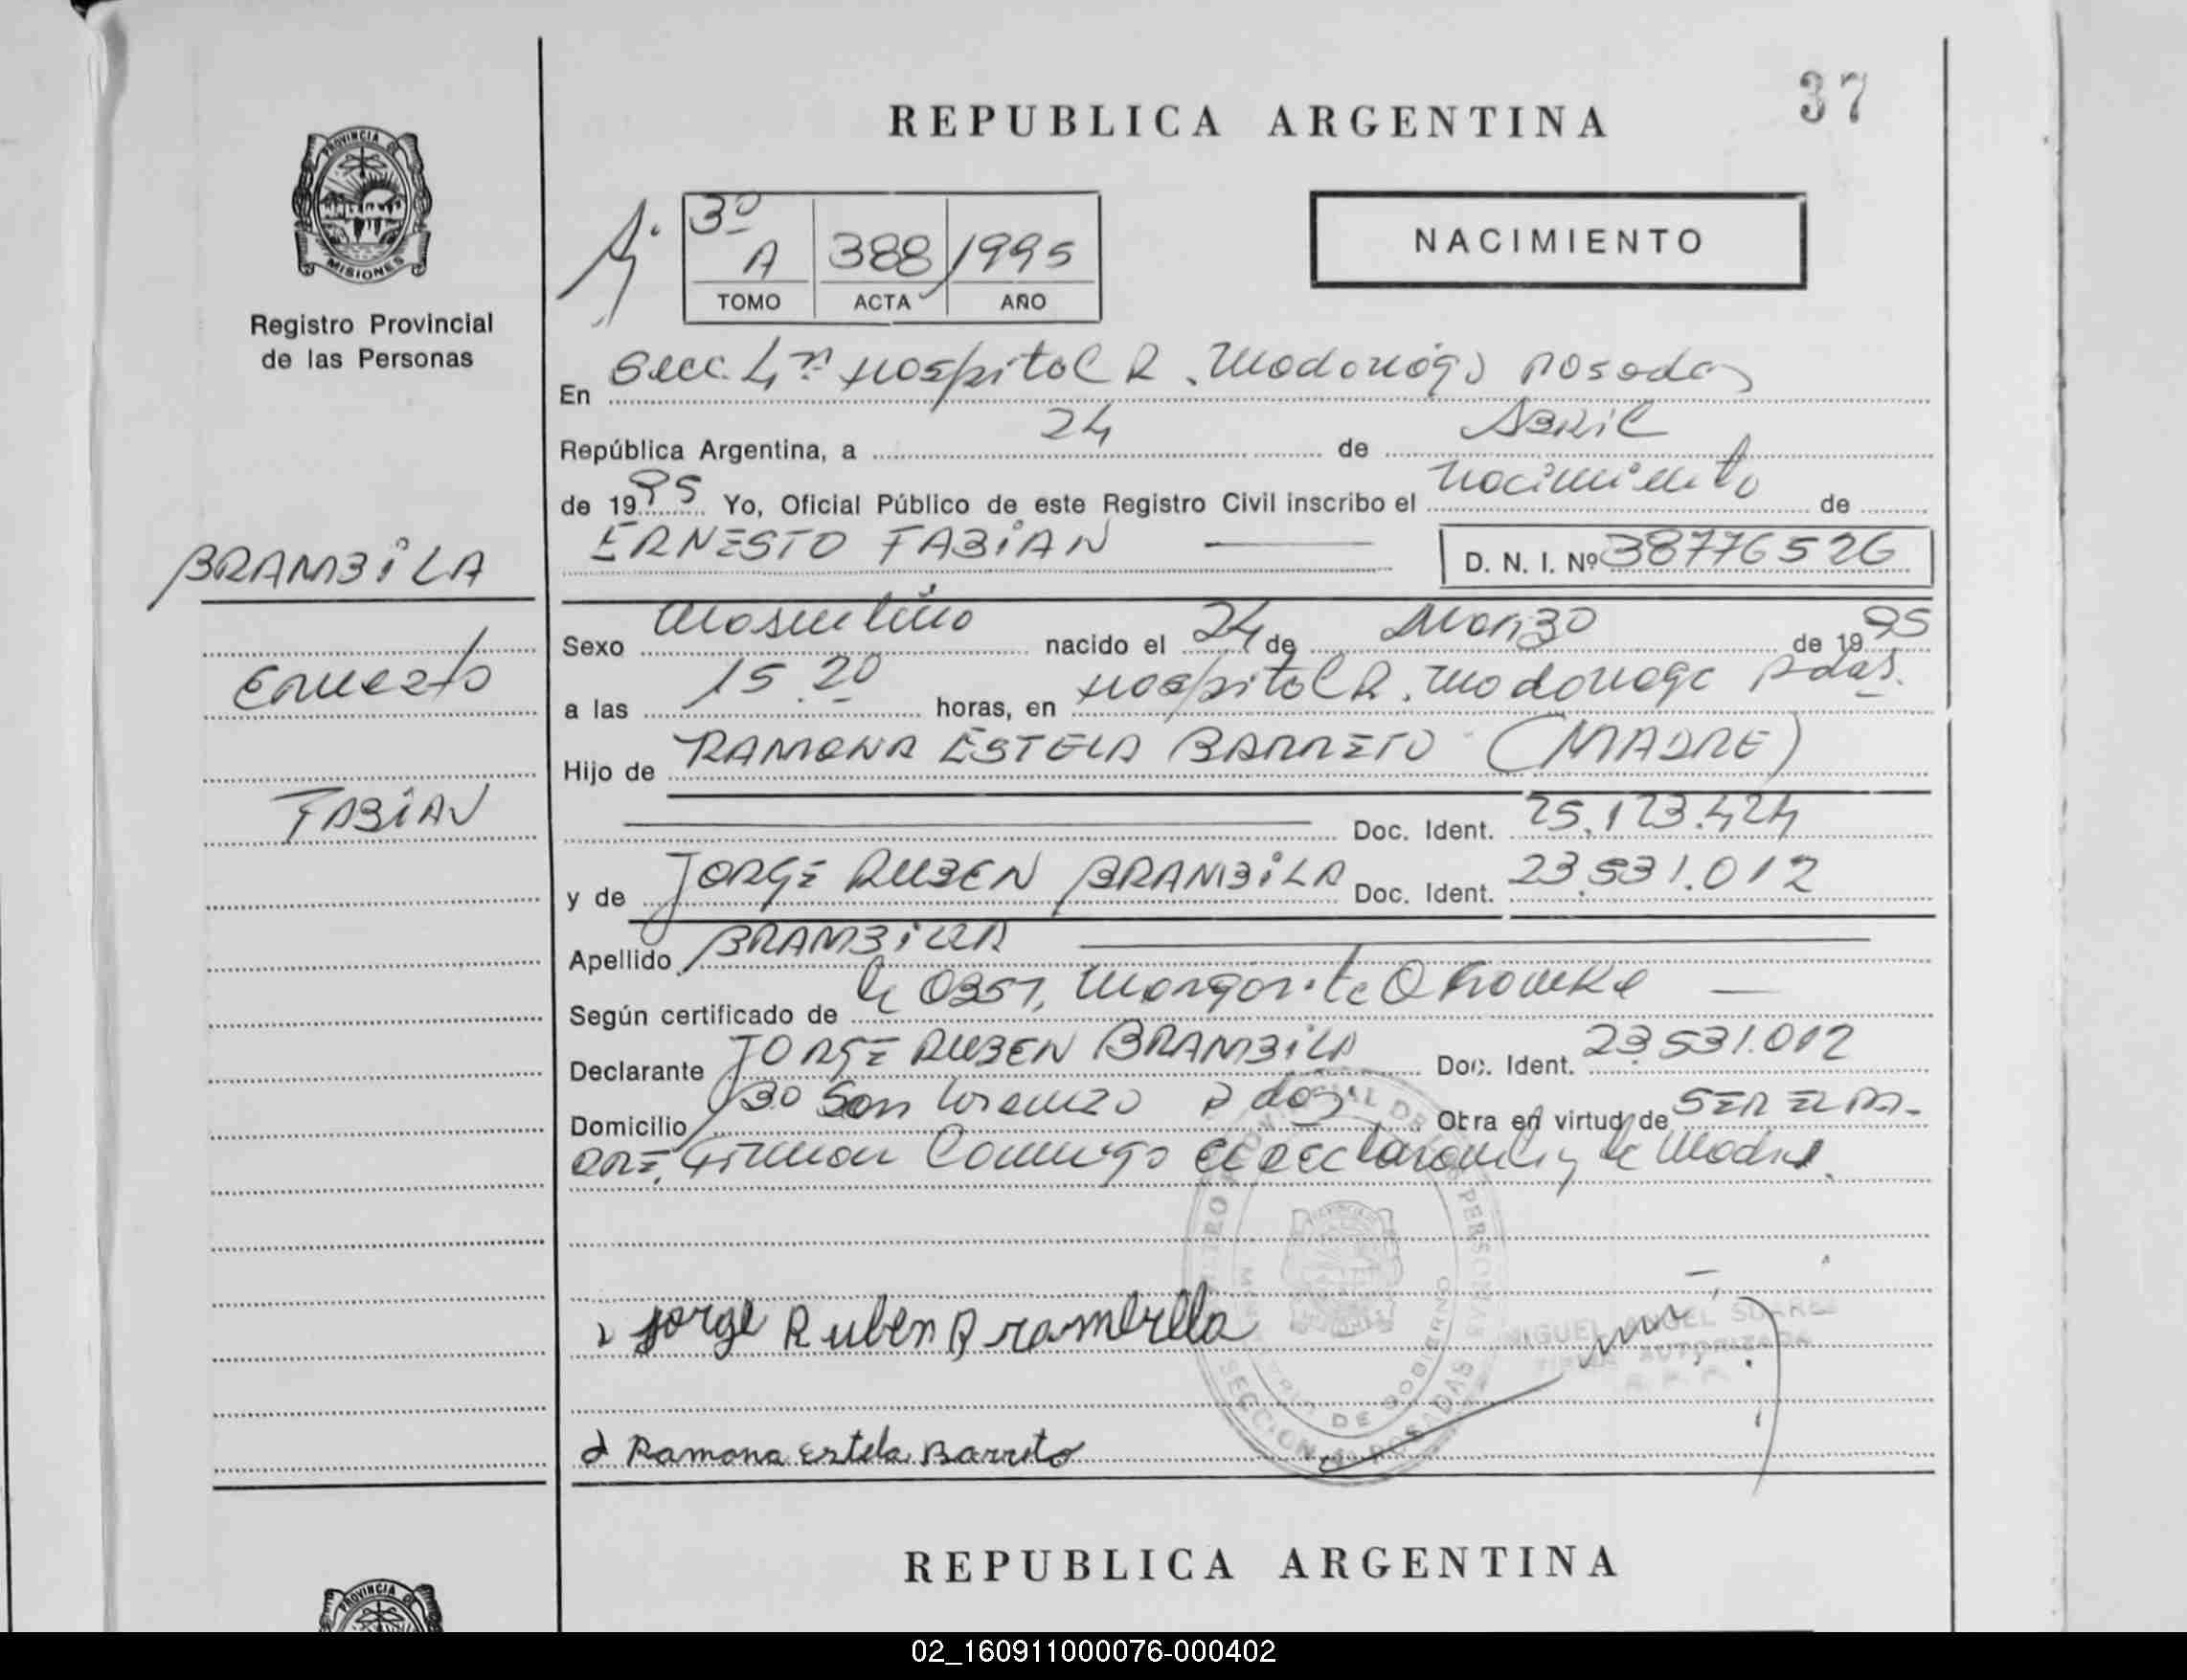 37
REPUBLICA ARGENTINA
PROVINCIA DE
MISIONES
Registro Provincial
de las Personas
3º
A 388 1995
TOMO ACTA AÑO
NACIMIENTO
En Secc. 4ª Hospital R. Madariaga Posadas
República Argentina, a 24 de Abril
de 1995 Yo, Oficial Público de este Registro Civil inscribo el nacimiento de
ERNESTO FABIAN
D. N. I. Nº 38776526
BRAMBILA
Ernesto
FABIAN
Sexo Masculino nacido el 24 de Marzo de 1995
a las 15.20 horas, en Hospital R. Madariaga Pdas.
Hijo de RAMONA ESTELA BARRETO (MADRE)
Doc. Ident. 25.123.424
y de JORGE RUBEN BRAMBILA Doc. Ident. 23.531.012
Apellido BRAMBILA
Según certificado de la Obst. Margarita
Declarante JORGE RUBEN BRAMBILA Doc. Ident. 23.531.012
Domicilio San Lorenzo Pdas Obra en virtud de SER EL PA-
DRE, Firman Conmigo el declarante y la Madre.
Jorge Ruben Brambilla
Ramona Estela Barreto
MIGUEL ANGEL SUAREZ
FIRMA AUTORIZADA
REPUBLICA ARGENTINA
PROVINCIA DE
02_160911000076-000402